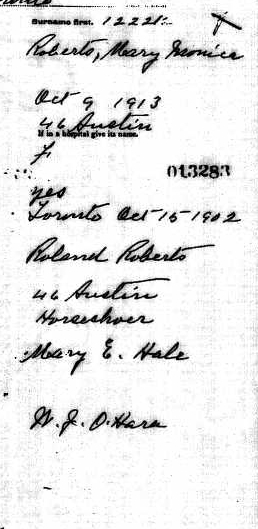 Surname first. 12221
Roberts, Mary Monica
Oct 9 1913
46 Austin
If in a hospital give its name.
F
013283
yes
Toronto Oct 15 1902
Roland Roberts
46 Austin
Horseshoer
Mary E. Hale
W. J. O'Hara